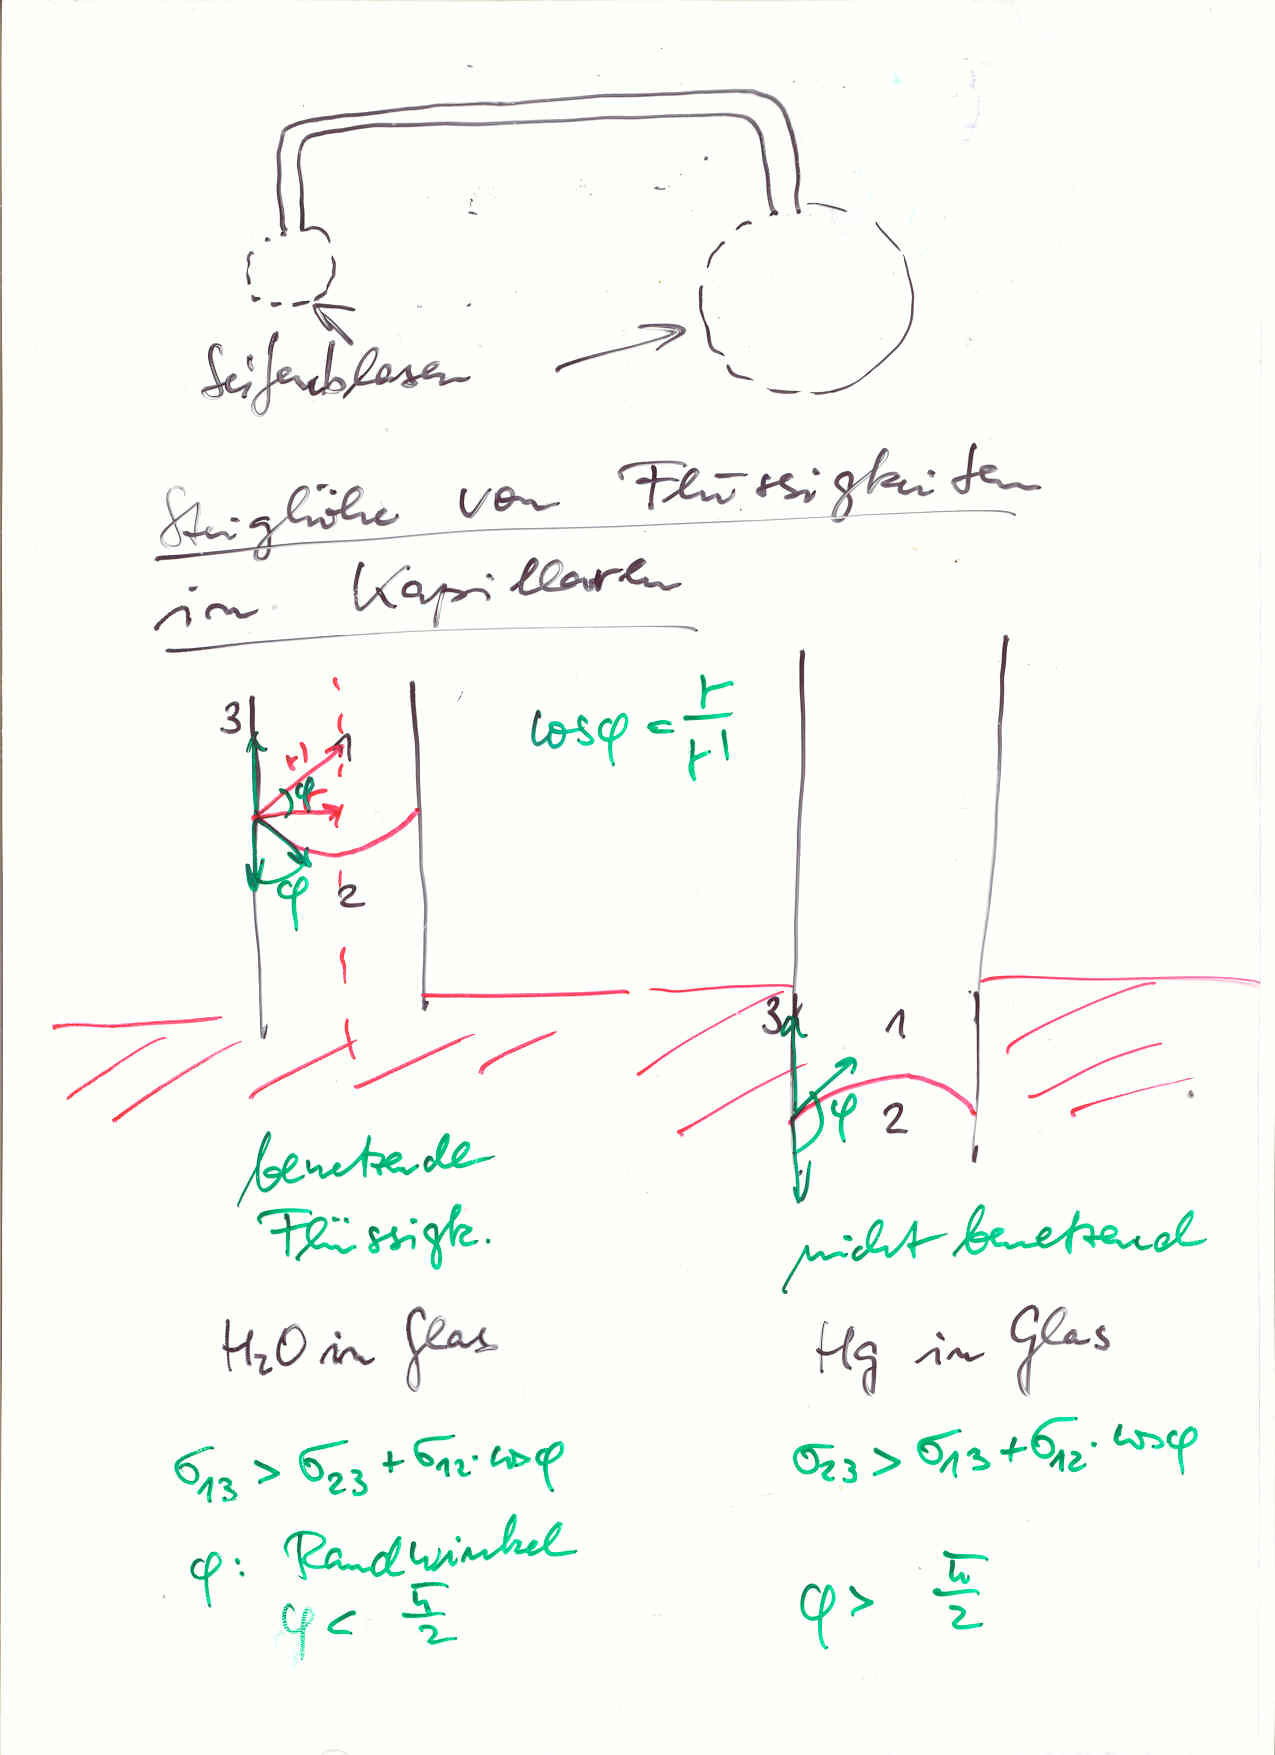 Seifenblasen
Steighöhe von Flüssigkeiten
in Kapillaren
3
r'
1
φ
r
φ
2
cosφ = r/r'
3
1
φ
2
benetzende
Flüssigk.
nicht benetzend
H₂O in Glas
Hg in Glas
σ₁₃ > σ₂₃ + σ₁₂ · cosφ
σ₂₃ > σ₁₃ + σ₁₂ · cosφ
φ: Randwinkel
φ < π/2
φ > π/2